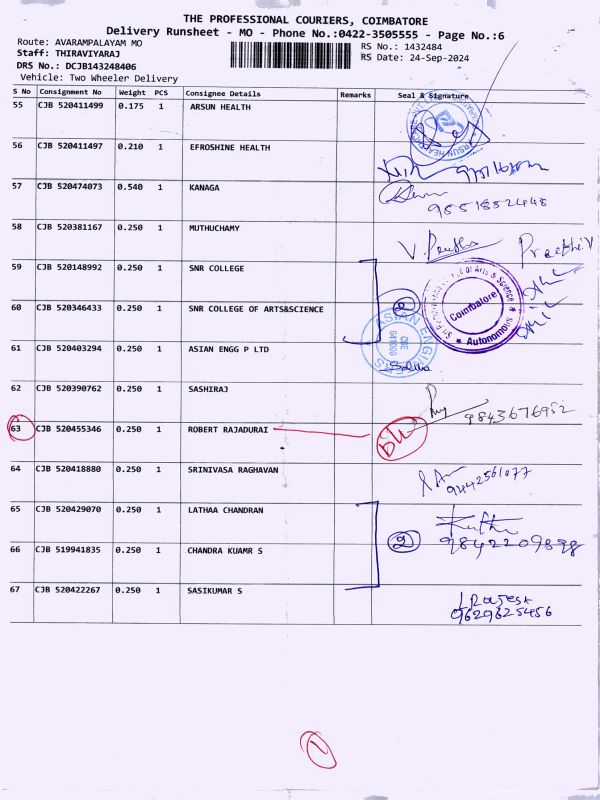 THE PROFESSIONAL COURIERS, COIMBATORE
Delivery Runsheet - MO - Phone No.:0422-3505555 - Page No.:6
Route: AVARAMPALAYAM MO
RS No.: 1432484
Staff: THIRAVIYARAJ
RS Date: 24-Sep-2024
DRS No.: DCJB143248406
Vehicle: Two Wheeler Delivery
S No Consignment No Weight PCS Consignee Details Remarks Seal & Signature
55 CJB 520411499 0.175 1 ARSUN HEALTH
56 CJB 520411497 0.210 1 EFROSHINE HEALTH
57 CJB 520474073 0.540 1 KANAGA
9551882448
58 CJB 520381167 0.250 1 MUTHUCHAMY
V. Preetha Preethi.V
59 CJB 520148992 0.250 1 SNR COLLEGE
60 CJB 520346433 0.250 1 SNR COLLEGE OF ARTS&SCIENCE
2
of Arts & Science
Coimbatore
★ Autonomous ★
61 CJB 520403294 0.250 1 ASIAN ENGG P LTD
ASIAN ENGINE
CBE
641006
62 CJB 520390762 0.250 1 SASHIRAJ
9843676952
63 CJB 520455346 0.250 1 ROBERT RAJADURAI
64 CJB 520418880 0.250 1 SRINIVASA RAGHAVAN
9442561077
65 CJB 520429070 0.250 1 LATHAA CHANDRAN
66 CJB 519941835 0.250 1 CHANDRA KUAMR S
2
9842209898
67 CJB 520422267 0.250 1 SASIKUMAR S
9629625456
1